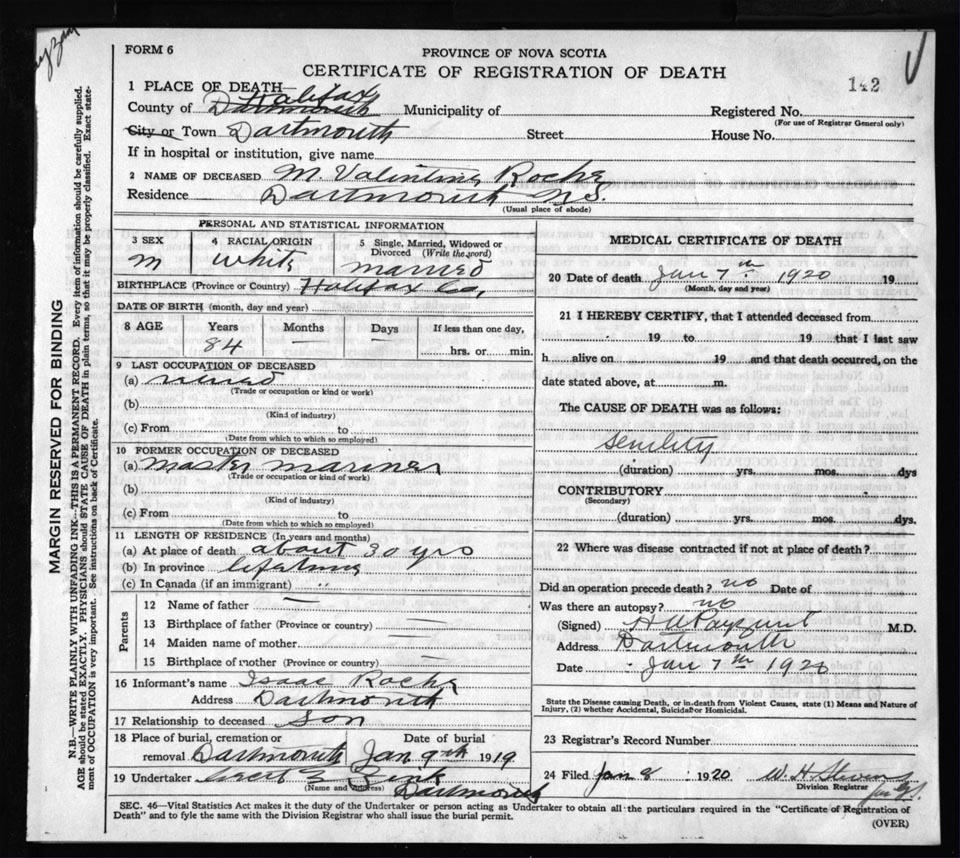 FORM 6
PROVINCE OF NOVA SCOTIA
CERTIFICATE OF REGISTRATION OF DEATH
142
1 PLACE OF DEATH—
Halifax
County of Dartmouth Municipality of Registered No.
(For use of Registrar General only)
City or Town Dartmouth Street House No.
If in hospital or institution, give name
2 NAME OF DECEASED M. Valentine Roche
Residence Dartmouth N.S.
(Usual place of abode)
PERSONAL AND STATISTICAL INFORMATION
3 SEX 4 RACIAL ORIGIN 5 Single, Married, Widowed or Divorced (Write the word)
M White Married
BIRTHPLACE (Province or Country) Halifax Co,
DATE OF BIRTH (month, day and year)
8 AGE Years Months Days If less than one day,
84 — — hrs. or min.
9 LAST OCCUPATION OF DECEASED
(a) retired
(Trade or occupation or kind or work)
(b)
(Kind of industry)
(c) From to
(Date from which to which so employed)
10 FORMER OCCUPATION OF DECEASED
(a) master mariner
(Trade or occupation or kind of work)
(b)
(Kind of industry)
(c) From to
(Date from which to which so employed)
11 LENGTH OF RESIDENCE (In years and months)
(a) At place of death about 30 yrs
(b) In province lifetime
(c) In Canada (if an immigrant)
Parents
12 Name of father —
13 Birthplace of father (Province or country) —
14 Maiden name of mother —
15 Birthplace of mother (Province or country) —
16 Informant's name Isaac Roche
Address Dartmouth
17 Relationship to deceased Son
18 Place of burial, cremation or Date of burial
removal Dartmouth Jan 9th 1919
19 Undertaker Zink
(Name and Address) Dartmouth
MEDICAL CERTIFICATE OF DEATH
20 Date of death Jan 7th 1920 19
(Month, day and year)
21 I HEREBY CERTIFY, that I attended deceased from
19 to 19 that I last saw
h alive on 19 and that death occurred, on the
date stated above, at m.
The CAUSE OF DEATH was as follows:
Senility
(duration) yrs. mos. dys
CONTRIBUTORY
(Secondary)
(duration) yrs. mos. dys.
22 Where was disease contracted if not at place of death?
Did an operation precede death? no Date of
Was there an autopsy? no
(Signed) H A Payzant M.D.
Address Dartmouth
Date Jan 7th 1920
State the Disease causing Death, or in death from Violent Causes, state (1) Means and Nature of
Injury, (2) whether Accidental, Suicidal or Homicidal.
23 Registrar's Record Number
24 Filed Jan 8 1920 W. H. Stevens
Division Registrar
SEC. 46—Vital Statistics Act makes it the duty of the Undertaker or person acting as Undertaker to obtain all the particulars required in the "Certificate of Registration of
Death" and to fyle the same with the Division Registrar who shall issue the burial permit.
(OVER)
MARGIN RESERVED FOR BINDING
N.B.—WRITE PLAINLY WITH UNFADING INK—THIS IS A PERMANENT RECORD. Every item of information should be carefully supplied.
AGE should be stated EXACTLY. PHYSICIANS should STATE CAUSE OF DEATH in plain terms, so that it may be properly classified. Exact state-
ment of OCCUPATION is very important. See instructions on back of Certificate.